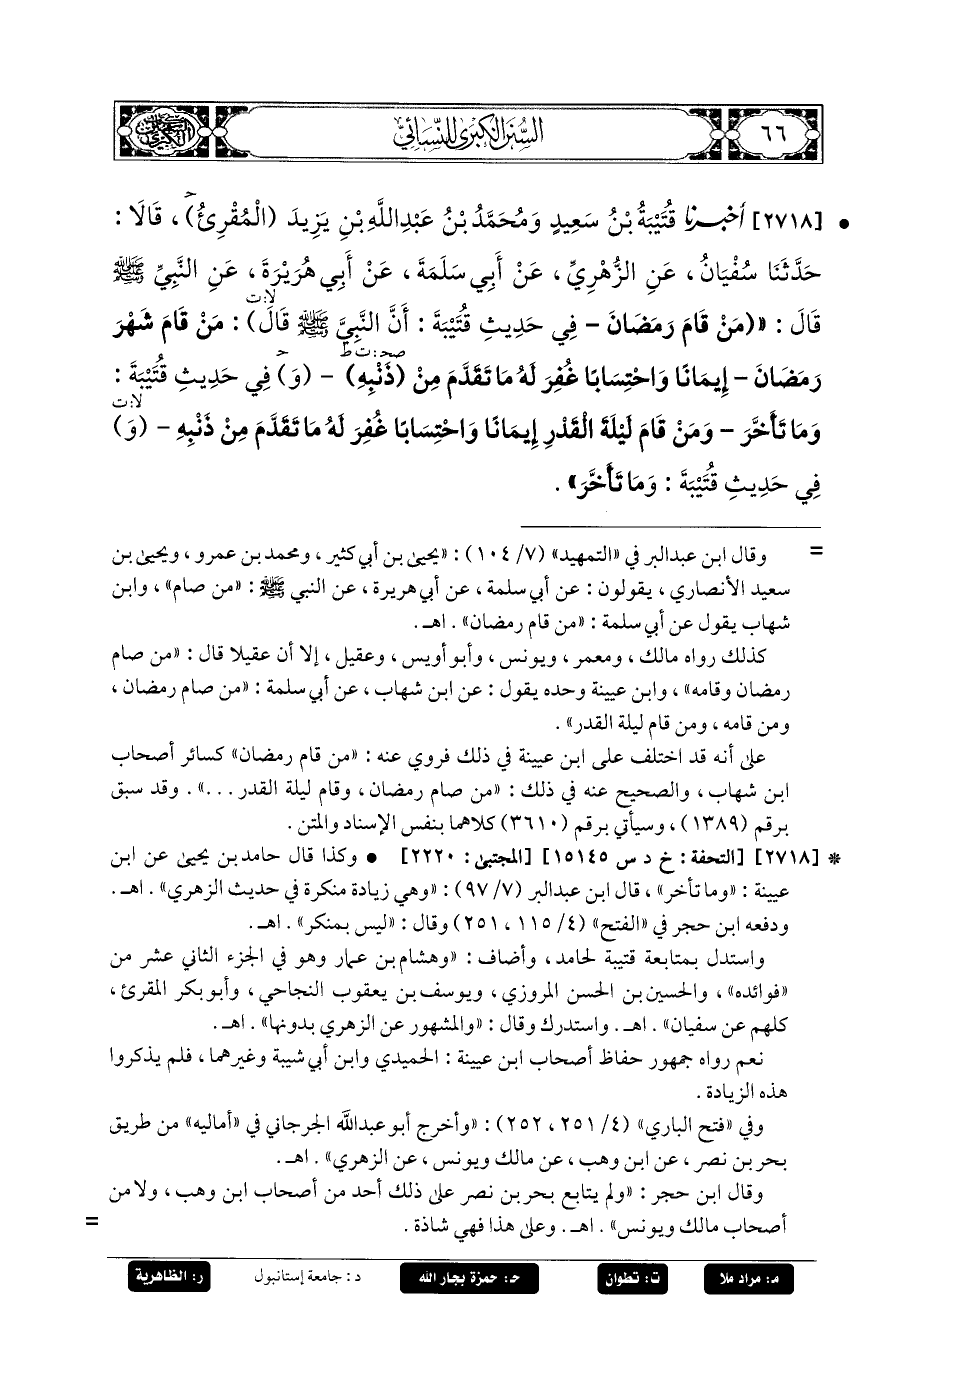 ٦٦
السنن الكبرى للنسائي
• [٢٧١٨] أخبرنا قُتَيْبَةُ بْنُ سَعِيدٍ وَمُحَمَّدُ بْنُ عَبْدِاللَّهِ بْنِ يَزِيدَ (الْمُقْرِئُ)ح، قَالَا :
حَدَّثَنَا سُفْيَانُ، عَنِ الزُّهْرِيِّ، عَنْ أَبِي سَلَمَةَ، عَنْ أَبِي هُرَيْرَةَ، عَنِ النَّبِيِّ ﷺ
قَالَ : «(مَنْ قَامَ رَمَضَانَ - فِي حَدِيثِ قُتَيْبَةَ : أَنَّ النَّبِيَّ ﷺ قَالَ)لا:ت : مَنْ قَامَ شَهْرَ
رَمَضَانَ - إِيمَانًا وَاحْتِسَابًا غُفِرَ لَهُ مَا تَقَدَّمَ مِنْ (ذَنْبِهِ)صح:ت ط - (وَ)ح فِي حَدِيثِ قُتَيْبَةَ :
وَمَا تَأَخَّرَ - وَمَنْ قَامَ لَيْلَةَ الْقَدْرِ إِيمَانًا وَاحْتِسَابًا غُفِرَ لَهُ مَا تَقَدَّمَ مِنْ ذَنْبِهِ - (وَ)لا:ت
فِي حَدِيثِ قُتَيْبَةَ : وَمَا تَأَخَّرَ» .
= وقال ابن عبدالبر في «التمهيد» (٧/ ١٠٤) : «يحيى بن أبي كثير، ومحمد بن عمرو، ويحيى بن
سعيد الأنصاري، يقولون : عن أبي سلمة، عن أبي هريرة، عن النبي ﷺ : «من صام»، وابن
شهاب يقول عن أبي سلمة : «من قام رمضان» . اهـ.
كذلك رواه مالك، ومعمر، ويونس، وأبو أويس، وعقيل، إلا أن عقيلا قال : «من صام
رمضان وقامه»، وابن عيينة وحده يقول : عن ابن شهاب، عن أبي سلمة : «من صام رمضان،
ومن قامه، ومن قام ليلة القدر» .
على أنه قد اختلف على ابن عيينة في ذلك فروي عنه : «من قام رمضان» كسائر أصحاب
ابن شهاب، والصحيح عنه في ذلك : «من صام رمضان، وقام ليلة القدر ...» . وقد سبق
برقم (١٣٨٩)، وسيأتي برقم (٣٦١٠) كلاهما بنفس الإسناد والمتن .
* [٢٧١٨] [التحفة : خ د س ١٥١٤٥] [المجتبى : ٢٢٢٠] • وكذا قال حامد بن يحيى عن ابن
عيينة : «وما تأخر»، قال ابن عبدالبر (٧/ ٩٧) : «وهي زيادة منكرة في حديث الزهري» . اهـ.
ودفعه ابن حجر في «الفتح» (٤/ ١١٥، ٢٥١) وقال : «ليس بمنكر» . اهـ.
واستدل بمتابعة قتيبة لحامد، وأضاف : «وهشام بن عمار وهو في الجزء الثاني عشر من
«فوائده»، والحسين بن الحسن المروزي، ويوسف بن يعقوب النجاحي، وأبو بكر المقرئ،
كلهم عن سفيان» . اهـ. واستدرك وقال : «والمشهور عن الزهري بدونها» . اهـ.
نعم رواه جمهور حفاظ أصحاب ابن عيينة : الحميدي وابن أبي شيبة وغيرهما، فلم يذكروا
هذه الزيادة .
وفي «فتح الباري» (٤/ ٢٥١، ٢٥٢) : «وأخرج أبو عبدالله الجرجاني في «أماليه» من طريق
بحر بن نصر، عن ابن وهب، عن مالك ويونس، عن الزهري» . اهـ.
وقال ابن حجر : «ولم يتابع بحر بن نصر على ذلك أحد من أصحاب ابن وهب، ولا من
أصحاب مالك ويونس» . اهـ. وعلى هذا فهي شاذة . =
م: مراد ملا ت: تطوان ح: حمزة بجار الله د: جامعة إستانبول ر: الظاهرية